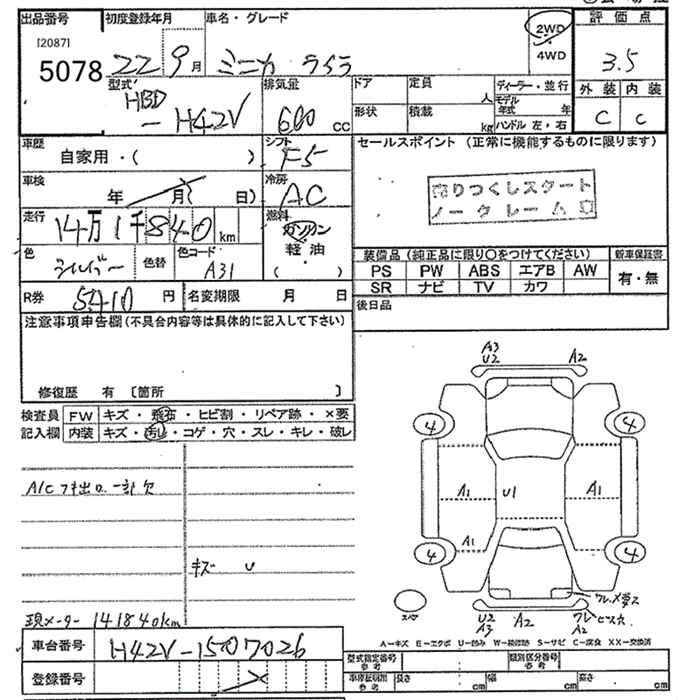 出品番号 初度登録年月 車名・グレード 評価点
[2087]
5078 22 9月 ミニカ ライラ 2WD・4WD 3.5
型式 排気量 ドア 定員 人 ディーラー・並行 外装 内装
HBD-H42V 600cc 形状 積載 kg モデル年式 年 ハンドル 左・右 C C
車歴 シフト セールスポイント (正常に機能するものに限ります)
自家用・( ) F5
車検 年 月( 日) 冷房 AC
売りつくしスタート
ノークレーム
走行 14万1千840km 燃料 ガソリン
軽油
( )
色 シルバー 色替 色コード A31
装備品(純正品に限り○をつけてください) 新車保証書
PS PW ABS エアB AW 有・無
SR ナビ TV カワ
R券 5410円 名変期限 月 日 後日品
注意事項申告欄(不具合内容等は具体的に記入して下さい)
修復歴 有 [箇所 ]
検査員 FW キズ・飛石・ヒビ割・リペア跡・×要
記入欄 内装 キズ・汚れ・コゲ・穴・スレ・キレ・破レ
A/C フキ出口一部欠
キズ U
現メーター 141840km
車台番号 H42V-1507026
登録番号
A3
U2 A2
4 4
A1 U1 A1
A1
4 4
スペア
U2
A3 A2 ワレ
A2
A=キズ E=エクボ U=凹み W=補修跡 S=サビ C=腐食 XX=交換済
型式指定番号 参考 類別区分番号 参考
車庫証明用 参考 長さ cm 幅 cm 高さ cm